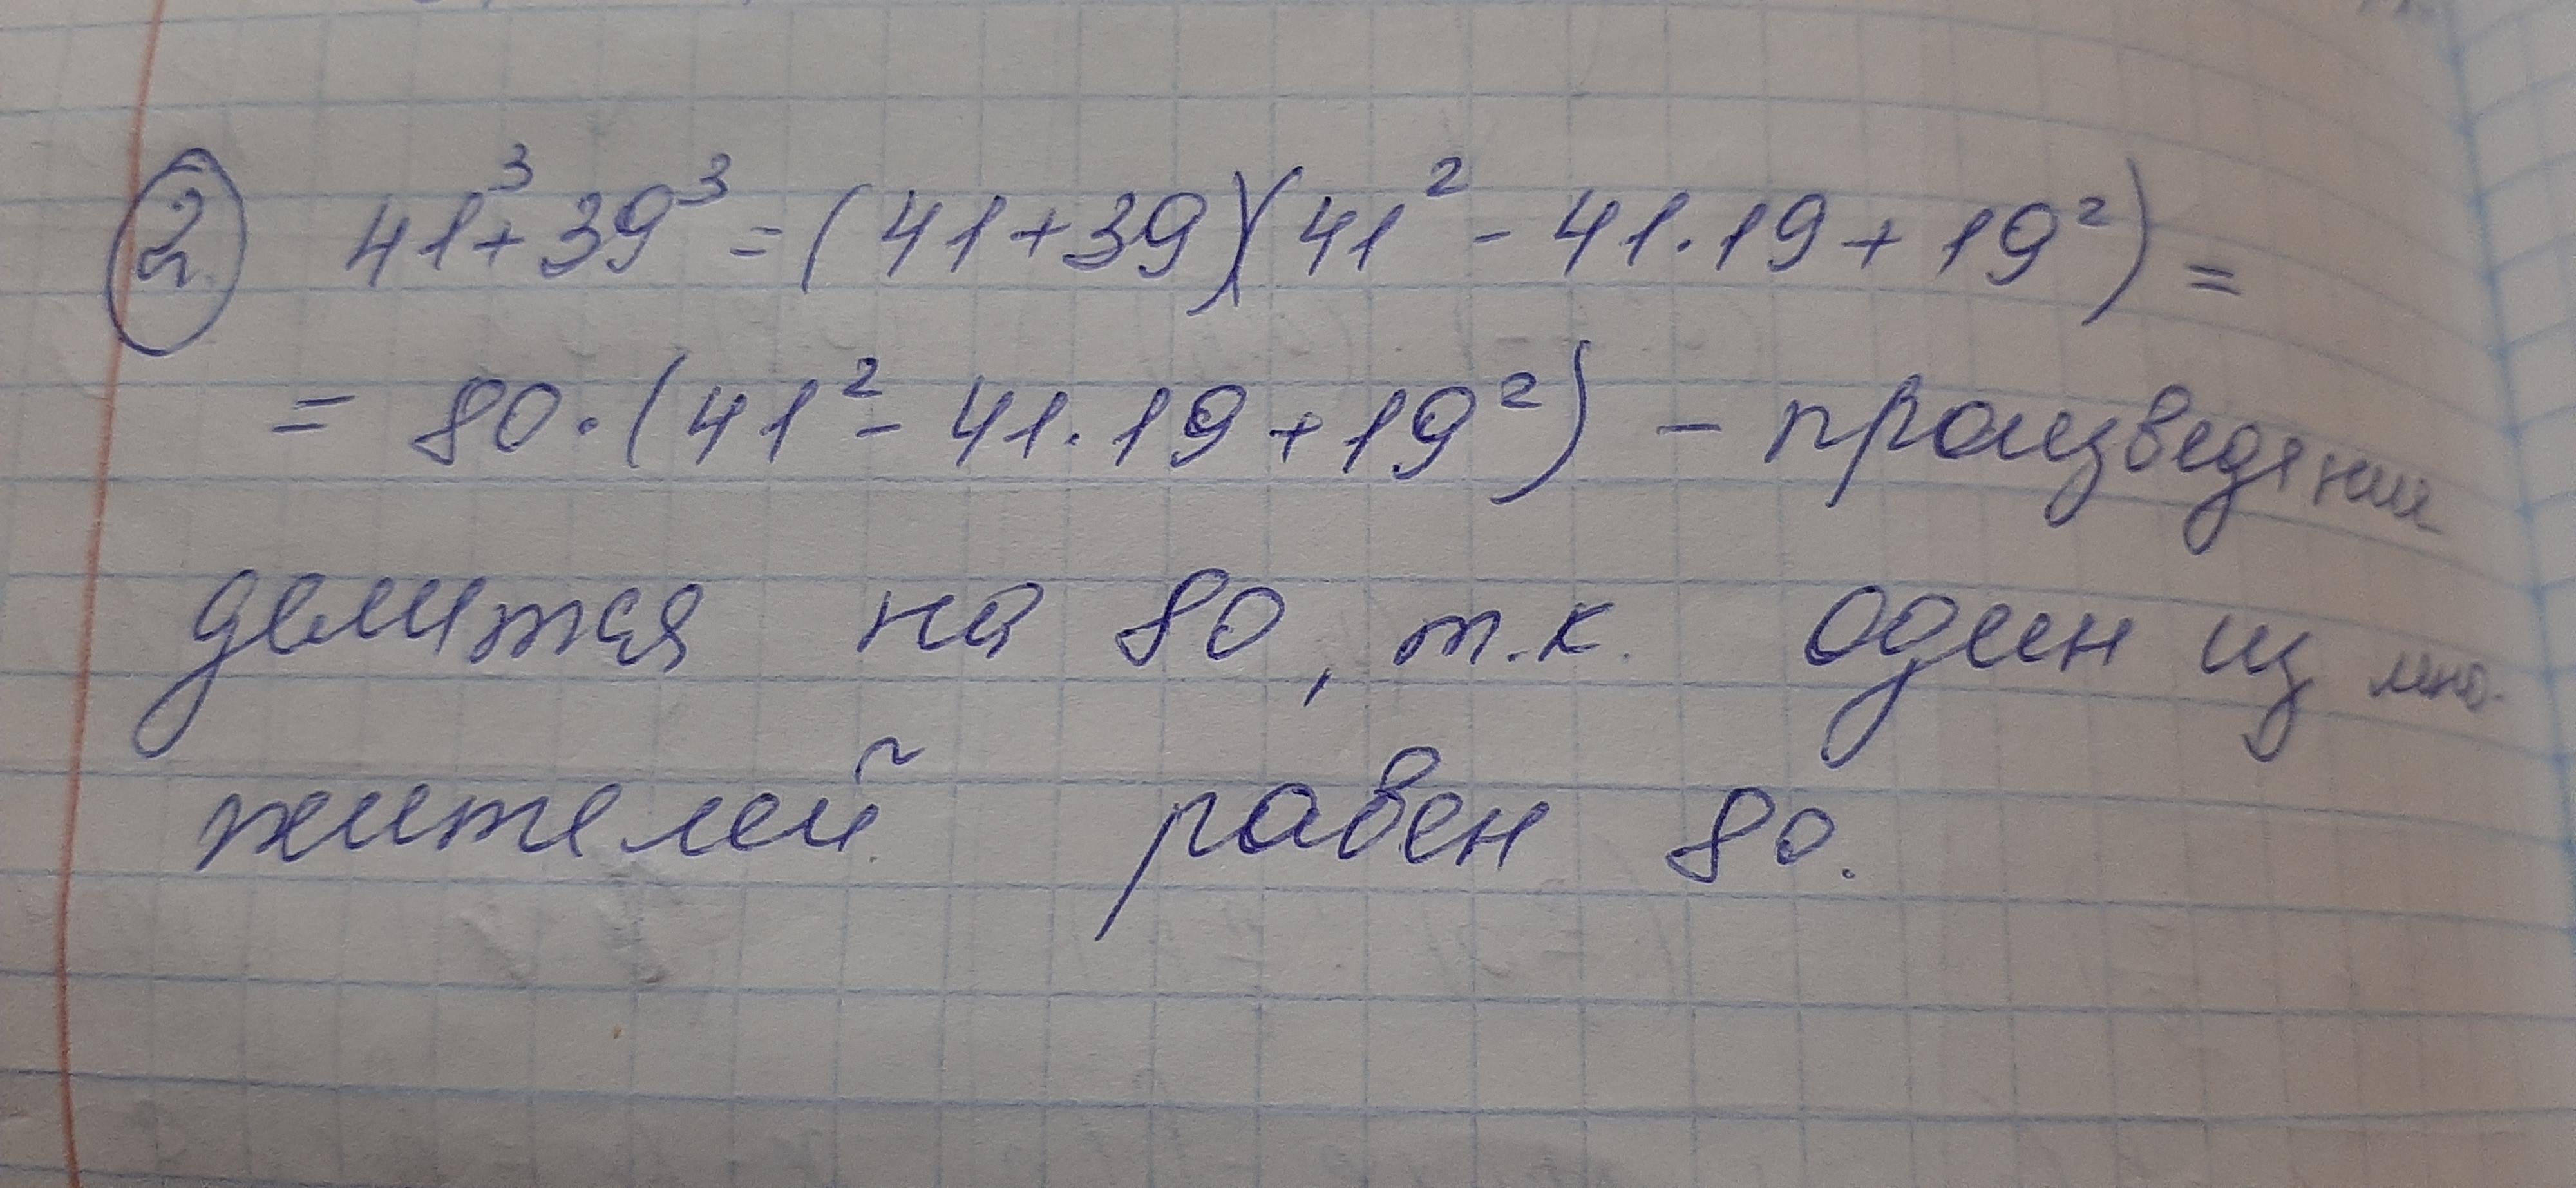 ② 41³ + 39³ = (41 + 39)(41² - 41·19 + 19²) =
= 80·(41² - 41·19 + 19²) - произведение
делится на 80, т.к. один из мно-
жителей равен 80.